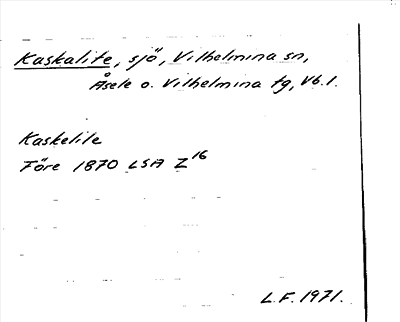 Kaskalite, sjö, Vilhelmina sn,
Åsele o. Vilhelmina tg, Vb.l.
Kaskelite
Före 1870 LSA Z16
L.F. 1971.